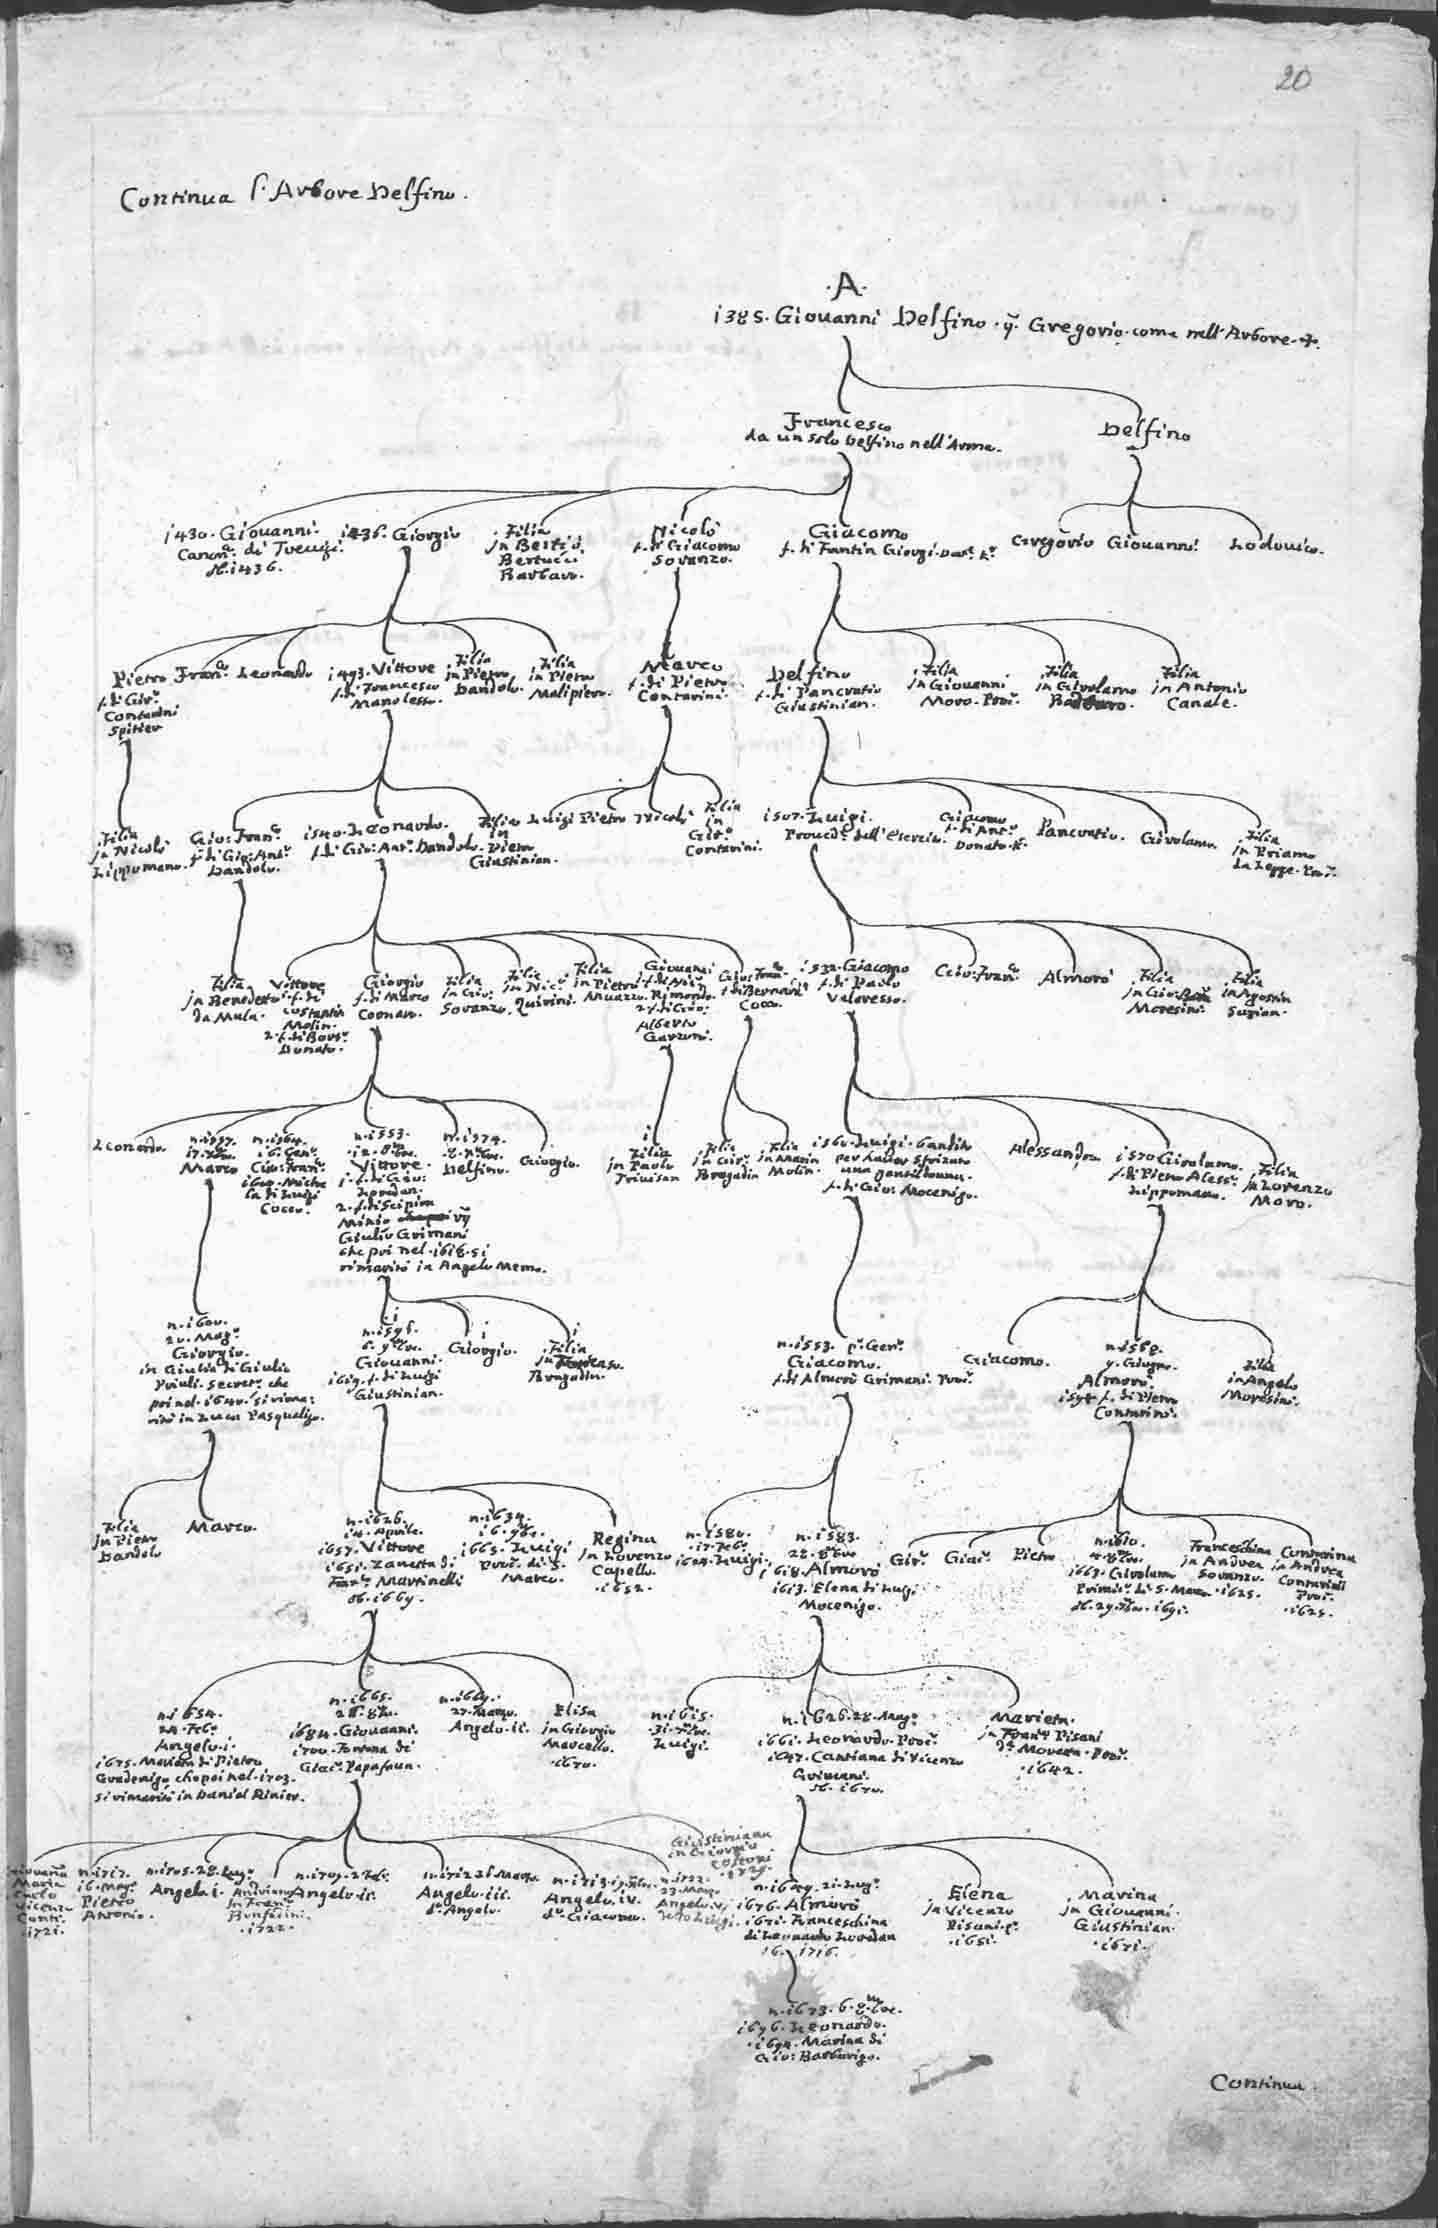 20
Continua l'Arbore Delfino.
·A·
1385. Giouanni Delfino. q. Gregorio come nell'Arbore
Francesco
da un solo Delfino nell'Arma.
Delfino
1430. Giouanni.
Canon.° di Treuigi.
ob. 1436.
1436. Giorgio
Filia
in
Bertucci
Barbaro.
Nicolò
f. di Giacomo
Soranzo.
Giacomo
f. di Fantin Giorgi
Gregorio
Giouanni
Lodouico.
Pietro
f. di Gir.°
Contarini
Spitier
Fran.°
Leonardo
1493. Vittore
f. di Francesco
Manolesso.
Filia
in Pietro
Dandolo.
Filia
in Pietro
Malipiero.
Marco
f. di Pietro
Contarini.
Delfino
f. di Pancratio
Giustinian.
Filia
in Giouanni
Moro. Proc.
Filia
in Girolamo
Filia
in Antonio
Canale.
Filia
in Nicolò
Lippomano.
Gio: Fran.°
f. di Gio: Ant.°
Dandolo.
1540. Leonardo.
f. di Gio: Ant.° Dandolo.
Filia
in
Piero
Giustinian.
Luigi
Pietro
Nicolò
Filia
in
Gir.°
Contarini.
1507. Luigi.
Proued.r dell'Esercito.
Giacomo
f. di Ant.°
Donato K.
Pancratio.
Girolamo.
Filia
in Priamo
da Lezze. Proc.
Filia
in Benedetto
da Mula.
Vittore
f. di
Costantin
Molin.
Donato.
Giorgio
f. di Marco
Cornaro.
Filia
in Gio:
Soranzo.
Filia
in Nic.°
Quirini.
Filia
in Pietro
Muazzo.
Giouanni
f. di Nic.°
Rimondo.
2. f. di Gio:
Alberto
Garzoni.
Gio: Fran.°
f. di Bernard.°
Cocco.
1532. Giacomo
f. di Paolo
Valaresso.
Gio: Fran.°
Almorò
Filia
in Gio:
Moresini.
Filia
in Agostin
Surian.
Leonardo.
n. 1557.
Marco
n. 1564.
16. Gen.°
Gio: Fran.°
la di Luigi
Cocco.
n. 1553.
Vittore.
1. f. di Gio:
Loredan.
2. f. di Scipion
Minio
Giulio Grimani
che poi nel 1618. si
rimaritò in Angelo Memo.
n. 1574.
Delfino.
Giorgio.
Filia
in Paolo
Triuisan
Filia
in Gir.°
Bragadin
Filia
in Marin
Molin.
1560. Luigi. bandito
per hauer sfrizato
una gentildonna.
f. di Gio: Mocenigo.
Alessandro
1570 Girolamo.
f. di Piero Aless.°
Lippomano.
Filia
in Lorenzo
Moro.
n. 1600.
20. Mag.°
Giorgio.
in Giulia di Giulio
Priuli. Secret.° che
poi nel 1640. si rima:
ritò in Luca Pasqualigo.
n. 1595.
Giouanni.
1619. f. di Luigi
Giustinian.
Giorgio.
Filia
in
Bragadin.
n. 1553. p.° Gen.°
Giacomo.
f. di Almorò Grimani. Proc.
Giacomo.
Giugno.
Almorò.
f. di Pietro
Contarini.
Filia
in Angelo
Moresini.
Filia
in Pietro
Dandolo
Marco.
n. 1626.
14. Aprile.
1657. Vittore
1651. Zanetta di
Fran.° Martinelli
ob. 1669.
n. 1634.
16. 9bre.
1665. Luigi
Proc. di S.
Marco.
Regina
in Lorenzo
Capello.
1652.
n. 1580.
17. Feb.°
1604. Luigi.
n. 1583.
22. 8bre
1618. Almorò
1613. Elena di Luigi
Mocenigo.
Gir.°
Giac.°
Pietro
n. 1610.
1663. Girolamo
Primic.° di S. Marco.
Franceschina
in Andrea
Soranzo.
1625.
Contarina
in Andrea
Contarini
Proc.
1625.
n. 1654.
24. Feb.°
Angelo. i.
1675. Marietta di Pietro
Gradenigo che poi nel 1703.
si rimaritò in Daniel Rinier.
n. 1665.
1684. Giouanni.
1700. Fontana di
Giac.° Papafaua.
n. 1669.
27. Marzo.
Angelo. ii.
Elisa
in Giorgio
Marcello.
1670.
n. 1615.
Luigi.
n. 1626. 28. Mag.°
1661. Leonardo. Proc.
1647. Cantiana di Vicenzo
Grimani.
ob. 1670.
Marieta.
in Fran.° Pisani
1642.
Giouana
Maria
Carlo
Vicenzo
Conti.
1721.
n. 1717.
16. Mag.°
Pietro
Antonio.
n. 1705. 28. Lug.°
Angelo. i.
Andriana
in Fran.°
Bonfadini.
1722.
n. 1709. 2 Feb.
Angelo. ii.
Angelo. iii.
d.° Angelo.
n. 1713.
Angelo. iv.
d.° Giacomo.
Angelo. v.
Giustiniana
in Giorgio
Cottoni
1729.
n. 1649. 21. Lug.°
1676. Almorò
1671. Franceschina
di Leonardo Loredan
1716.
Elena
in Vicenzo
Pisani
Marina
in Giovanni.
Giustinian.
1671.
n. 1673. 6. 8bre.
1696. Leonardo.
1694. Marina di
Gio: Barbarigo.
Continua.